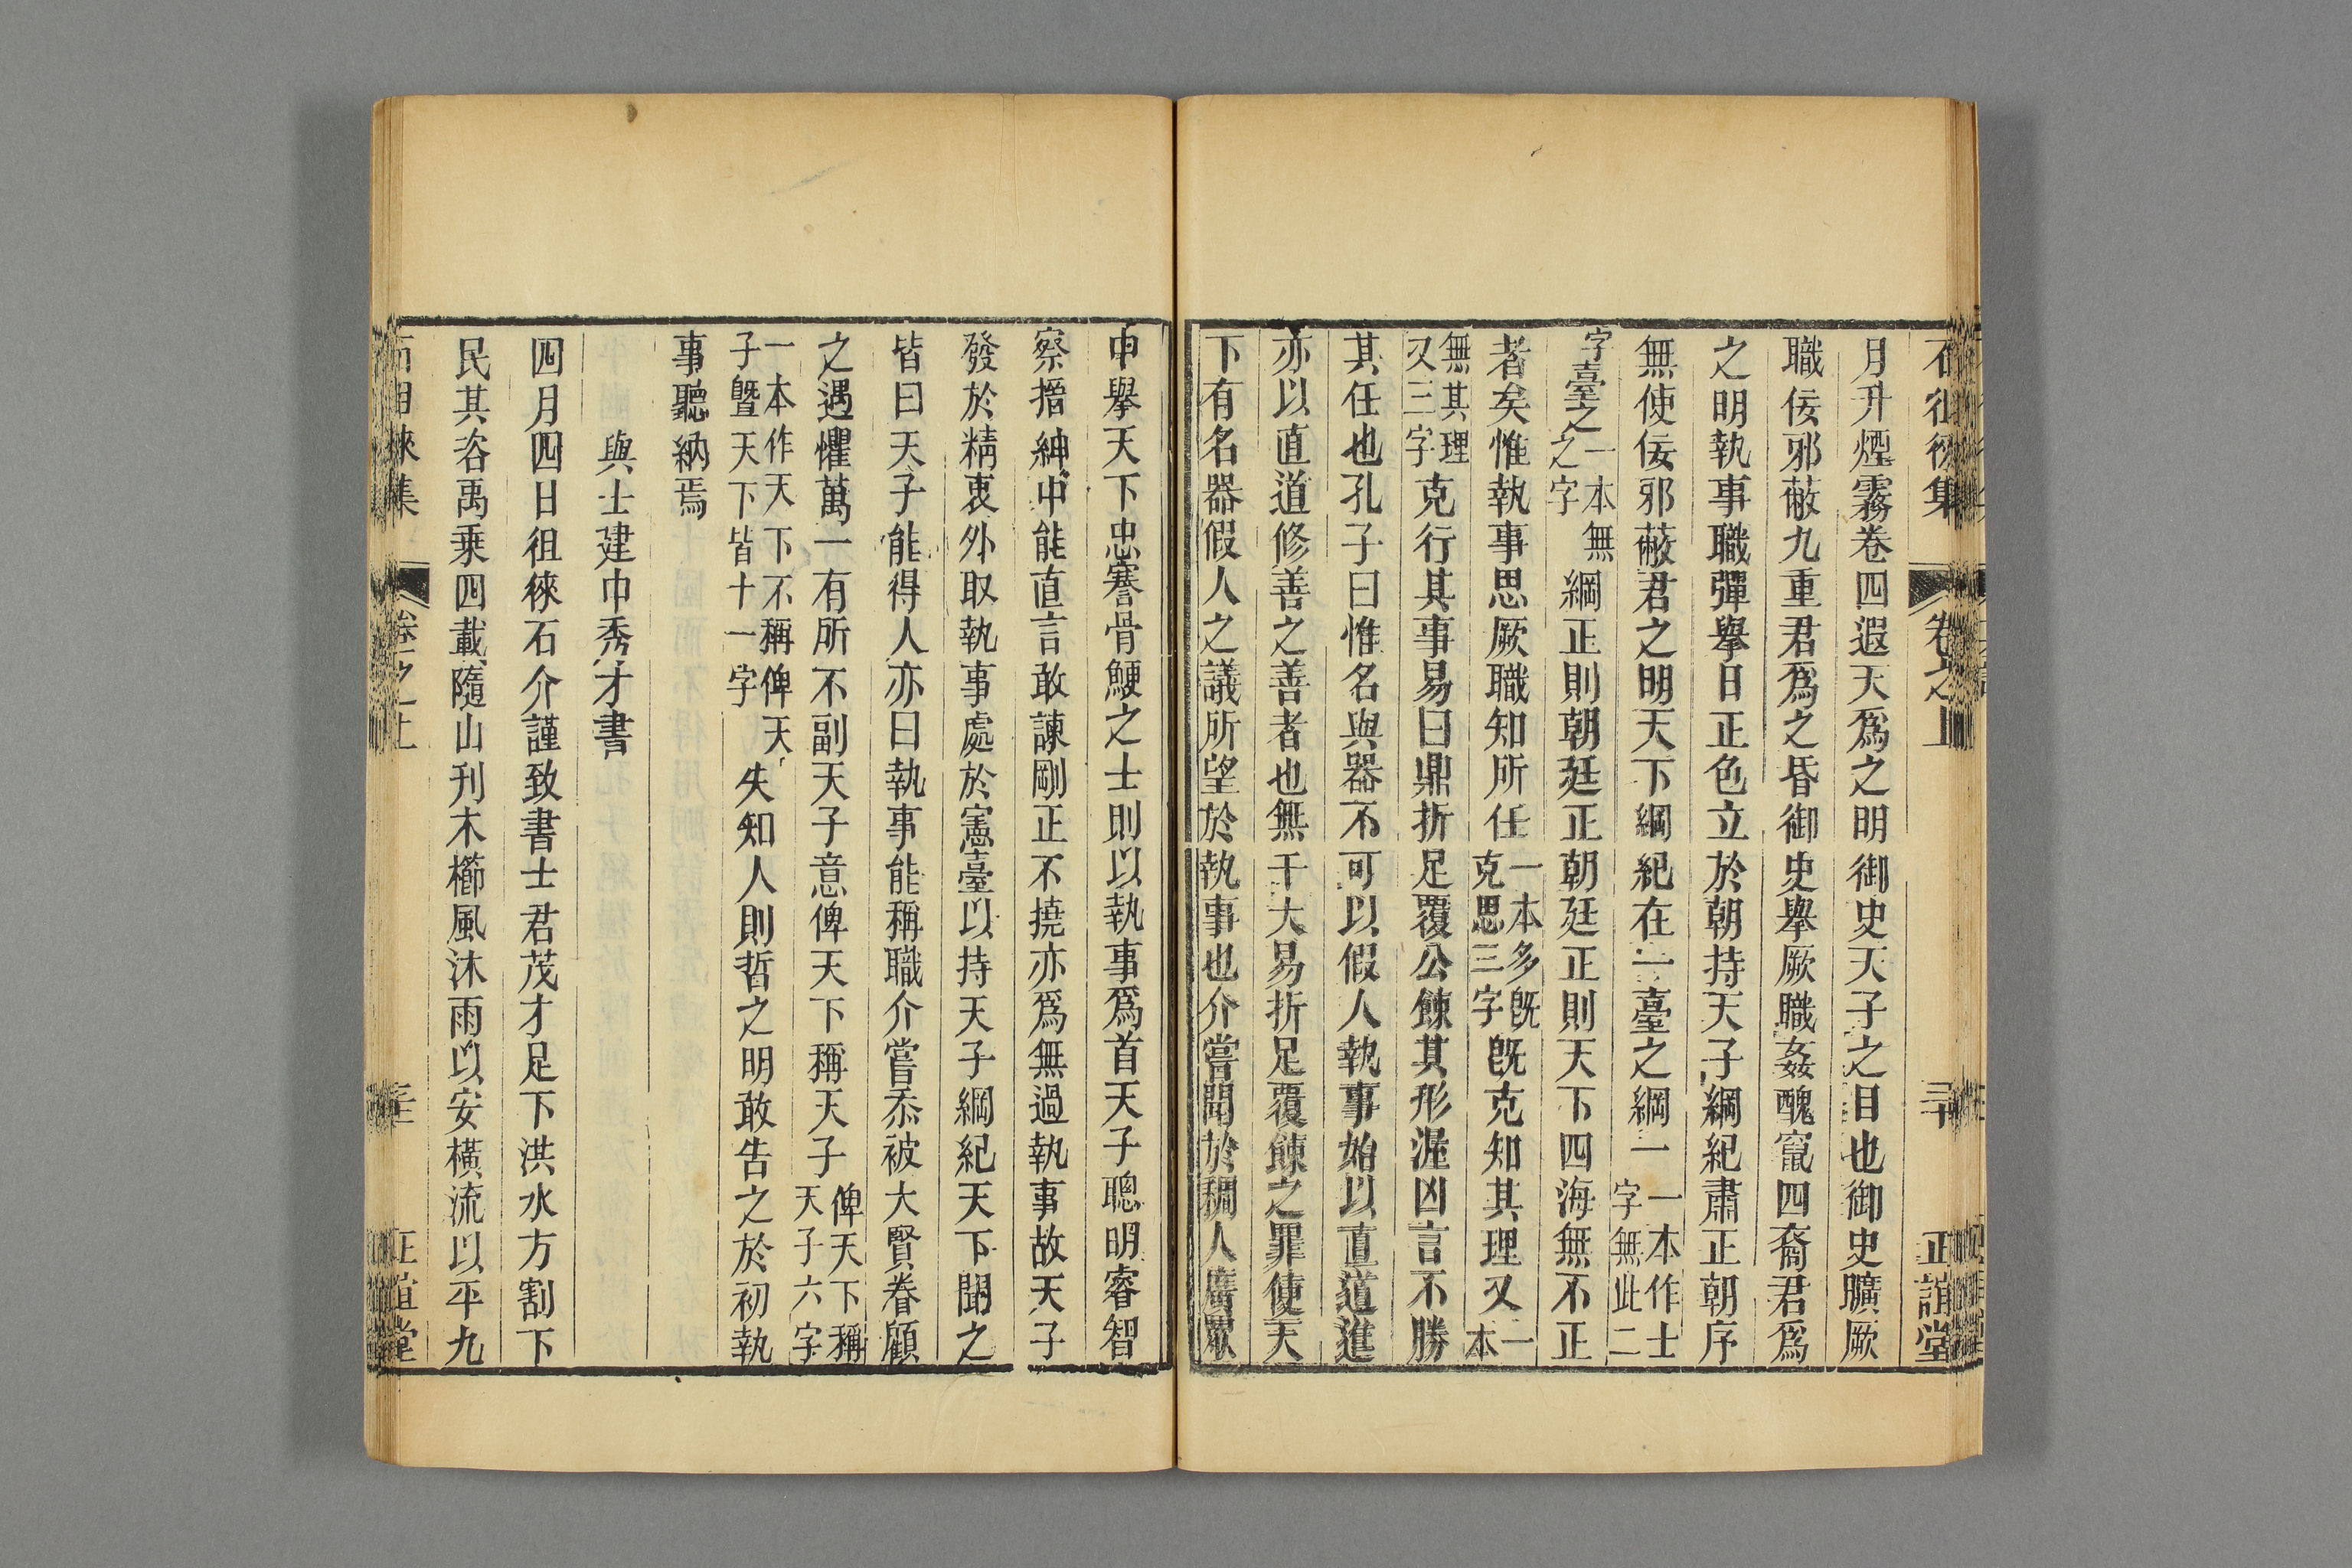 石徂徠集 卷之上 三十 正誼堂
月升煙霧卷四遐天爲之明御史天子之日也御史曠厥
職佞邪蔽九重君爲之昏御史舉厥職姦醜竄四裔君爲
之明執事職彈舉日正色立於朝持天子綱紀肅正朝序
無使佞邪蔽君之明天下綱紀在一臺之綱一一本作士字無此二
字臺之一本無之字綱正則朝廷正朝廷正則天下四海無不正
者矣惟執事思厥職知所任一本多旣克思三字旣克知其理又一本
無其理又三字克行其事易曰鼎折足覆公餗其形渥凶言不勝
其任也孔子曰惟名與器不可以假人執事始以直道進
亦以直道修善之善者也無干大易折足覆餗之罪使天
下有名器假人之議所望於執事也介嘗聞於稠人廣眾
中舉天下忠謇骨鯁之士則以執事爲首天子聰明睿智
察搢紳中能直言敢諫剛正不撓亦爲無過執事故天子
發於精衷外取執事處於憲臺以持天子綱紀天下聞之
皆曰天子能得人亦曰執事能稱職介嘗忝被大賢眷顧
之遇懼萬一有所不副天子意俾天下稱天子俾天下稱天子六字
一本作天下不稱俾天子曁天下皆十一字失知人則哲之明敢告之於初執
事聽納焉
與士建中秀才書
四月四日徂徠石介謹致書士君茂才足下洪水方割下
民其咨禹乘四載隨山刊木櫛風沐雨以安橫流以平九
徠集 卷之上 正誼堂